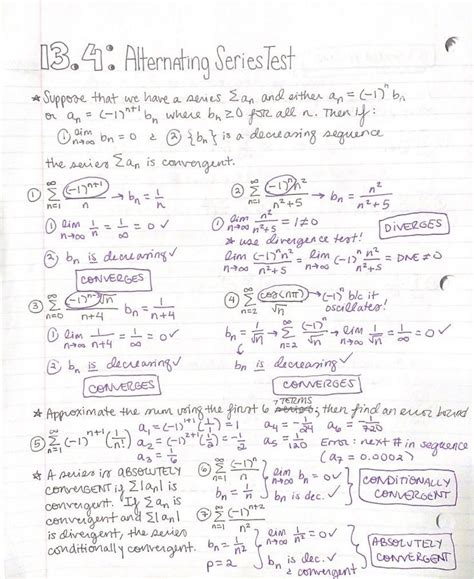 13.4: Alternating Series Test
* Suppose that we have a series Σan and either an = (-1)^n bn
or an = (-1)^(n+1) bn where bn ≥ 0 for all n. Then if:
① lim n→∞ bn = 0 & ② {bn} is a decreasing sequence
the series Σan is convergent.
① ∞Σn=1 (-1)^(n+1)/n → bn = 1/n
① lim n→∞ 1/n = 1/∞ = 0 ✓
② bn is decreasing ✓
CONVERGES
② ∞Σn=1 (-1)^n n²/(n²+5) → bn = n²/(n²+5)
① lim n→∞ n²/(n²+5) = 1 ≠ 0
DIVERGES
* use divergence test!
lim n→∞ (-1)^n n²/(n²+5) = lim n→∞ (-1)^n n²/(n²+5) = DNE ≠ 0
③ ∞Σn=0 √n/(n+4) bn = √n/(n+4)
① lim n→∞ 1/(n+4) = 1/∞ = 0 ✓
② bn is decreasing ✓
CONVERGES
④ ∞Σn=2 cos(nπ)/√n → (-1)^n b/c it
oscillates!
bn = 1/√n → ∞Σn=2 (-1)^n/√n → lim n→∞ 1/√n = 1/∞ = 0 ✓
bn is decreasing ✓
CONVERGES
* Approximate the sum using the first 6 TERMS; then find an error bound
⑤ ∞Σn=1 (-1)^(n+1) (1/n!) a1 = (-1)^(1+1) (1/1) = 1 a4 = -1/24 a6 = -1/720
a2 = (-1)^(2+1) (1/2) = -1/2 a5 = 1/120 Error: next # in sequence
a3 = 1/6 (a7 = 0.0002)
* A series is ABSOLUTELY
convergent if Σ|an|
convergent. If Σan is
convergent and Σ|an|
is divergent, the series
conditionally convergent.
⑥ ∞Σn=1 (-1)^n/n lim n→∞ bn = 0 ✓
bn = 1/n bn is dec. ✓
CONDITIONALLY
CONVERGENT
⑦ ∞Σn=1 (-1)^(n+2)/n²
bn = 1/n² lim n→∞ 1/n² = 0 ✓
p = 2 bn is dec. ✓
convergent
ABSOLUTELY
CONVERGENT